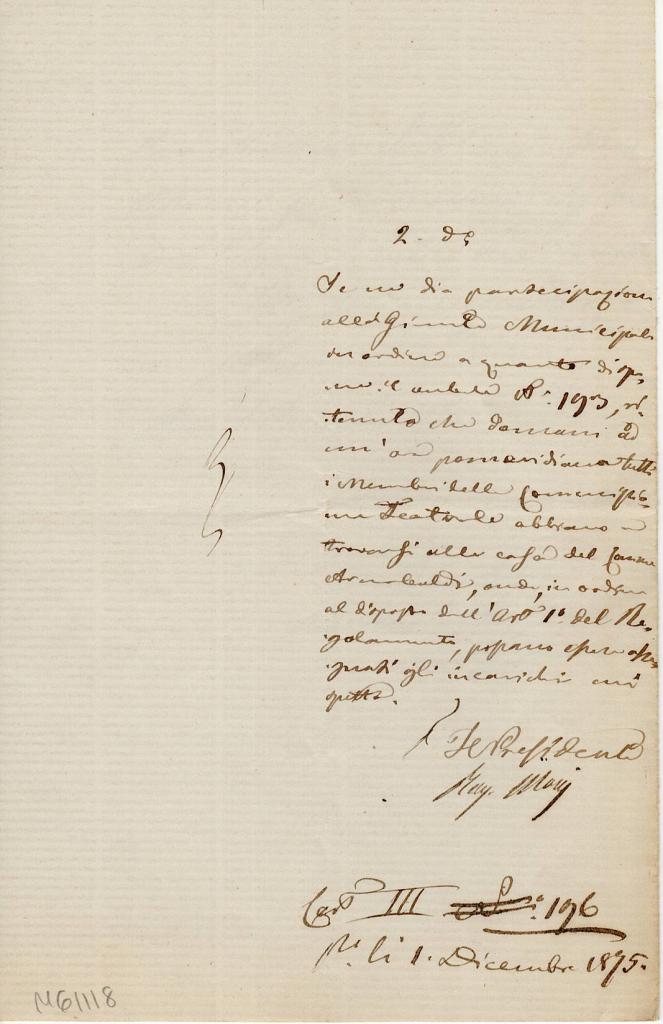 2. d.e
Se ne dia partecipazione
alla Giunta Municipale
in ordine a quanto dispo-
ne il N.° 193, ri-
tenuto che domani ad
un'ora pomeridiana tutti
i Membri della Commissio-
ne Teatrale abbiano a
trovarsi alla casa del
Arnabaldi, onde, in ordine
al disposto dell'Art° 1° del Re-
golamento, possano essere asse-
gnati gli incarichi
Il Presidente
III 196
li 1. Dicembre 1875.
M61118